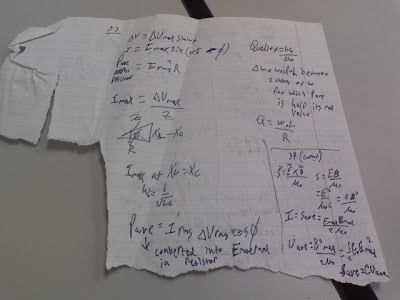 33
ΔV = ΔVmax sin ωt
I = Imax sin(ωt - φ)
Pave = I²rms R
Imax = ΔVmax / Z
Z
XL - XC
R
Imax at XL = XC
W = 1/√LC
Pave = Irms ΔVrms cos φ
converted into Einternal
in resistor
Quality = ω₀/Δω
Δω = width between
2 values of ω
for which Pave
is half its max
value
Q = ω₀L/R
34 (cont)
S = E×B/μ₀
S = EB/μ₀
= E²/μ₀c = cB²/μ₀
I = Save = EmaxBmax/2μ₀
Uave = B²max/2μ₀
Save = cUave